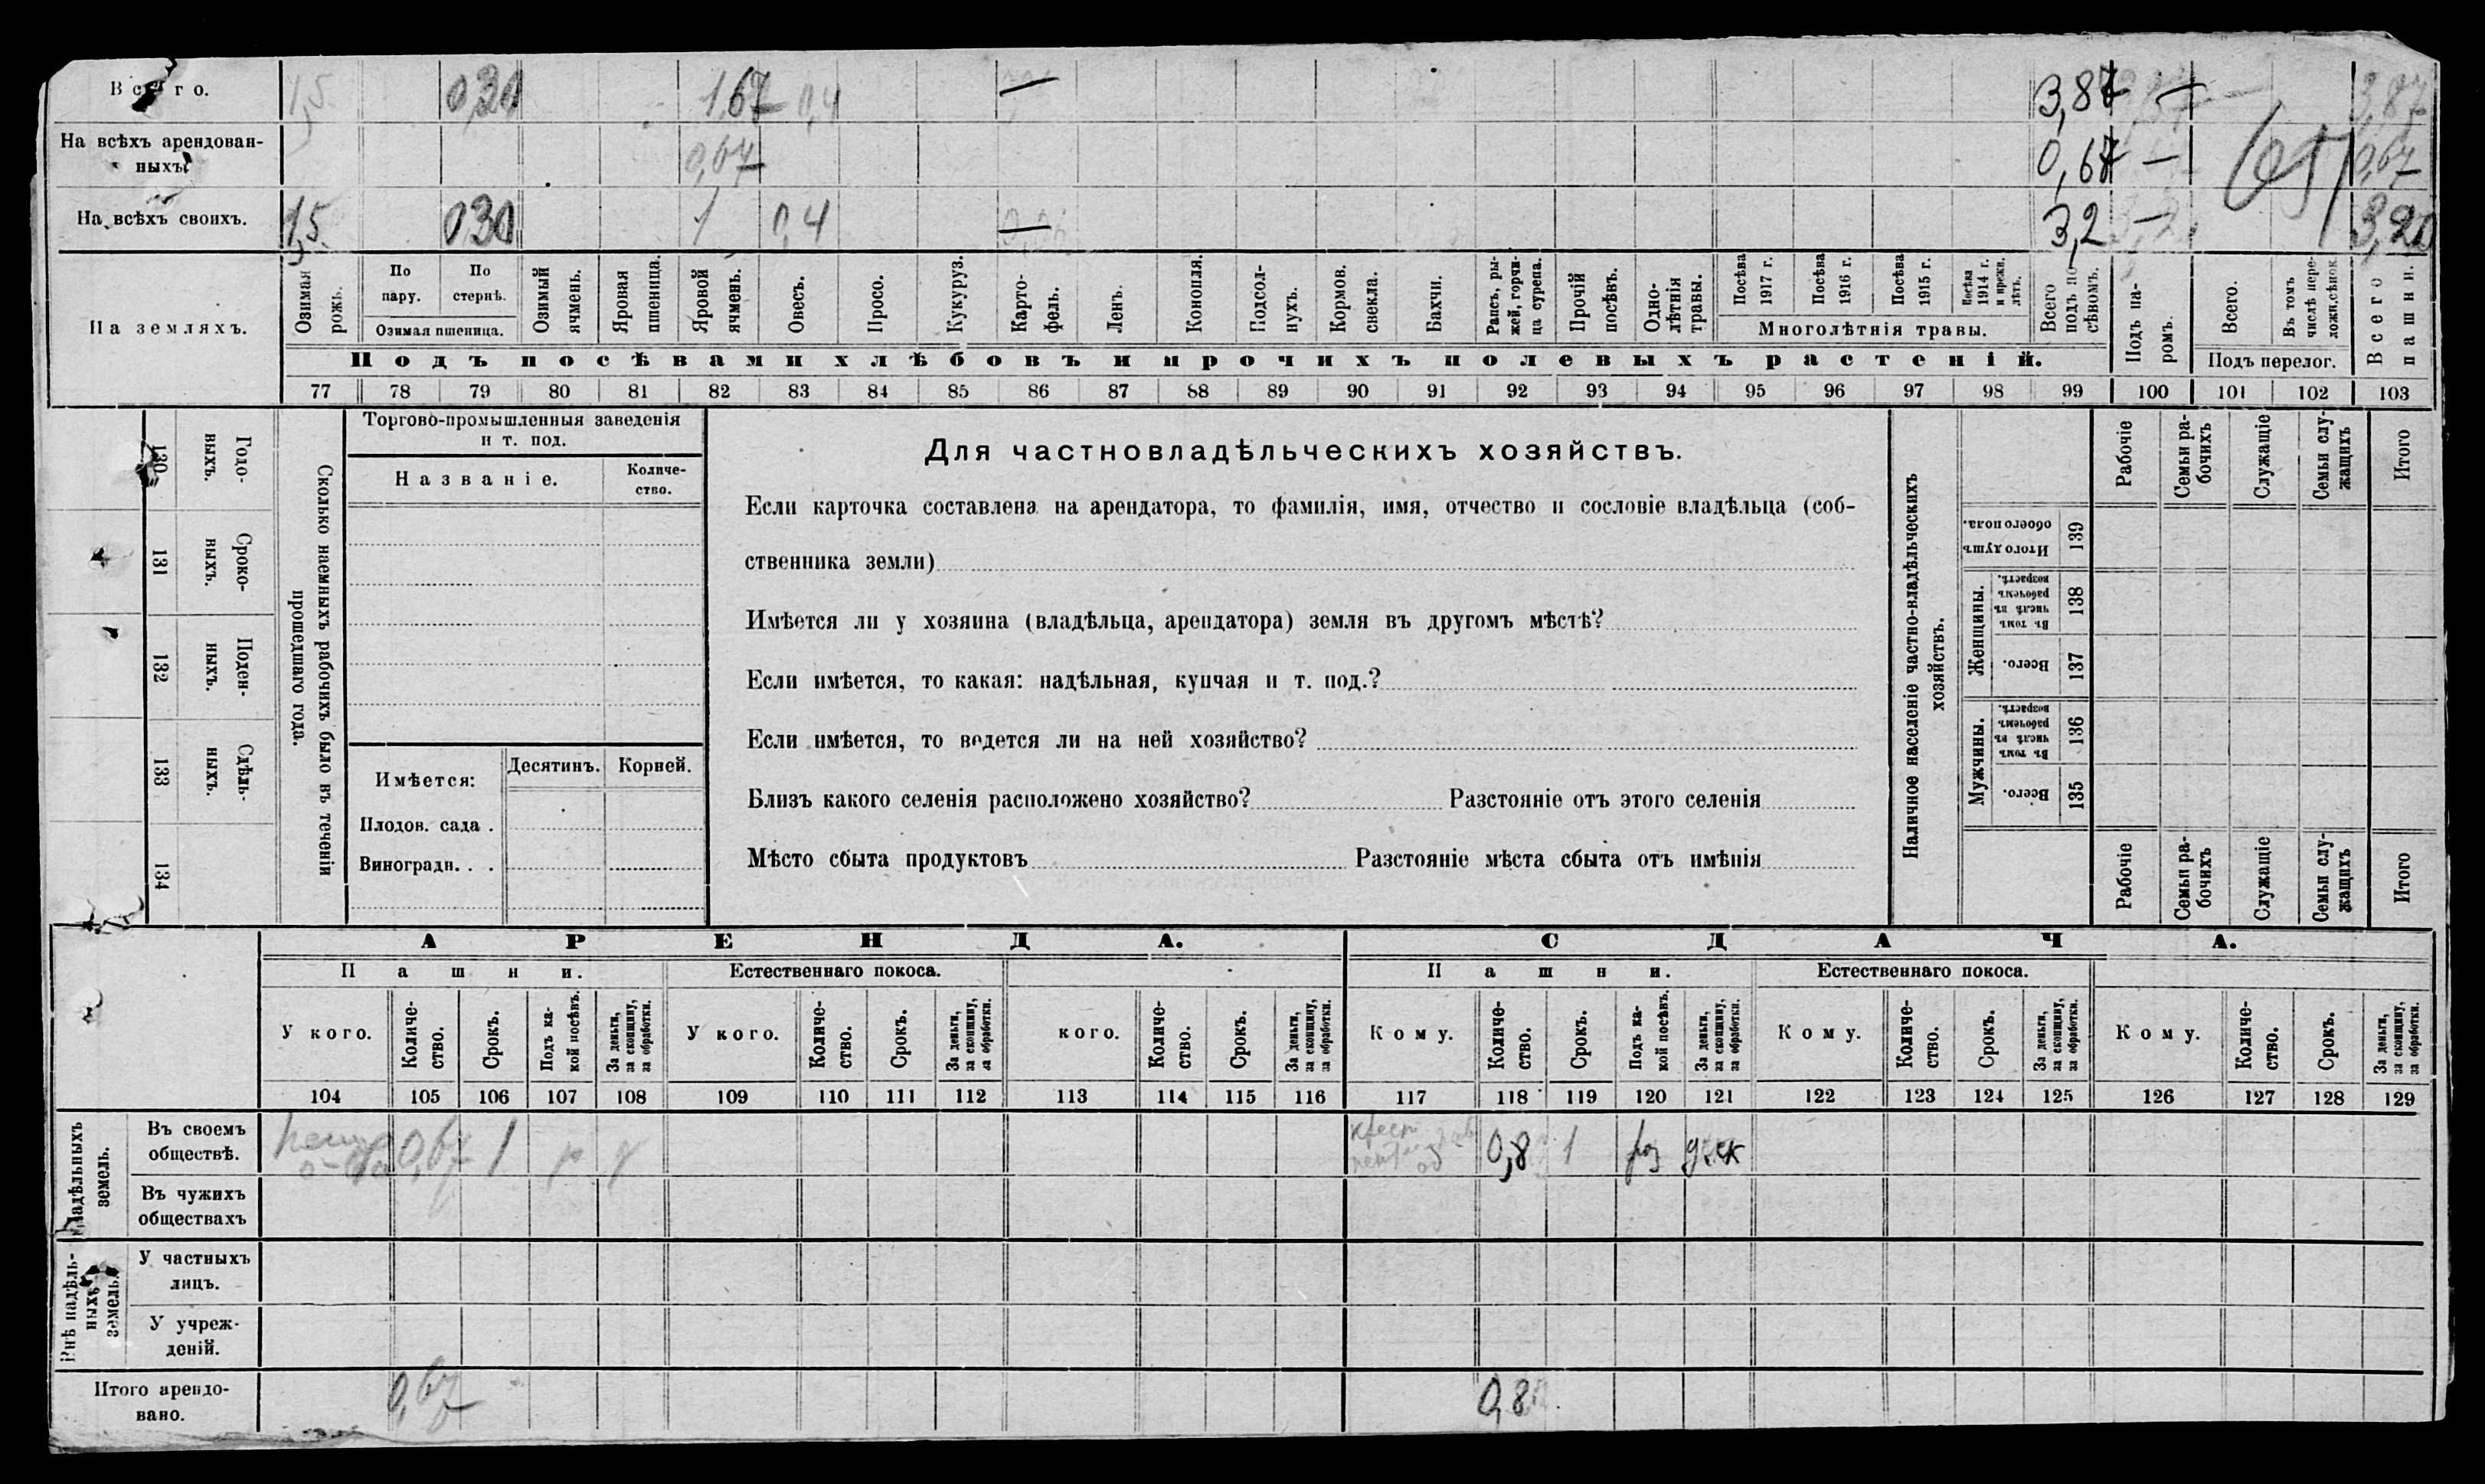 Всего. 1,5 0,30 1,67 0,4 — 3,87 — 3,87
На всѣхъ арендован-
ныхъ. 0,67 0,67 — 0,67
На всѣхъ своихъ. 1,5 030 1 0,4 — 3,2 — 3,20
На земляхъ.
Озимая рожь.
По пару.
По стернѣ.
Озимая пшеница.
Озимый ячмень.
Яровая пшеница.
Яровой ячмень.
Овесъ.
Просо.
Кукуруз.
Карто-
фель.
Ленъ.
Конопля.
Подсол-
нухъ.
Кормов. свекла.
Бахчи.
Рапсъ, ры-
жей, горчи-
ца сурепа.
Прочій посѣвъ.
Одно-
лѣтнія травы.
Посѣва 1917 г.
Посѣва 1916 г.
Посѣва 1915 г.
Посѣва 1914 г. и прежн. лѣтъ.
Многолѣтнія травы.
Всего подъ по-
сѣвомъ.
Подъ па-
ромъ.
Всего.
Въ томъ числѣ пере-
ложн. сѣнок.
Подъ перелог.
Всего пашни.
Подъ посѣвами хлѣбовъ и прочихъ полевыхъ растеній.
77 78 79 80 81 82 83 84 85 86 87 88 89 90 91 92 93 94 95 96 97 98 99 100 101 102 103
Годо-
выхъ.
130
Сроко-
выхъ.
131
Поден-
ныхъ.
132
Сдѣль-
ныхъ.
133
134
Сколько наемныхъ рабочихъ было въ теченіи
прошедшаго года.
Торгово-промышленныя заведенія
и т. под.
Названіе.
Количе-
ство.
Имѣется:
Десятинъ. Корней.
Плодов. сада .
Виноградн. . .
Для частновладѣльческихъ хозяйствъ.
Если карточка составлена на арендатора, то фамилія, имя, отчество и сословіе владѣльца (соб-
ственника земли)
Имѣется ли у хозяина (владѣльца, арендатора) земля въ другомъ мѣстѣ?
Если имѣется, то какая: надѣльная, купчая и т. под.?
Если имѣется, то ведется ли на ней хозяйство?
Близъ какого селенія расположено хозяйство? Разстояніе отъ этого селенія
Мѣсто сбыта продуктовъ Разстояніе мѣста сбыта отъ имѣнія
Наличное населеніе частно-владѣльческихъ
хозяйствъ.
Рабочіе
Семьи ра-
бочихъ
Служащіе
Семьи слу-
жащихъ
Итого
Итого душъ обоего пола.
139
Женщины.
Въ томъ числѣ въ рабочемъ возрастѣ.
138
Всего.
137
Мужчины.
Въ томъ числѣ въ рабочемъ возрастѣ.
136
Всего.
135
Рабочіе
Семьи ра-
бочихъ
Служащіе
Семьи слу-
жащихъ
Итого
АРЕНДА. СДАЧА.
Пашни. Естественнаго покоса. Пашни. Естественнаго покоса.
У кого.
Количе-
ство.
Срокъ.
Подъ ка-
кой посѣвъ.
За деньги, за скопщину, за обработки.
У кого.
Количе-
ство.
Срокъ.
За деньги, за скопщину, за обработки.
кого.
Количе-
ство.
Срокъ.
За деньги, за скопщину, за обработки.
Кому.
Количе-
ство.
Срокъ.
Подъ ка-
кой посѣвъ.
За деньги, за скопщину, за обработки.
Кому.
Количе-
ство.
Срокъ.
За деньги, за скопщину, за обработки.
Кому.
Количе-
ство.
Срокъ.
За деньги, за скопщину, за обработки.
104 105 106 107 108 109 110 111 112 113 114 115 116 117 118 119 120 121 122 123 124 125 126 127 128 129
надѣльныхъ
земель.
Въ своемъ
обществѣ. 0,67 1 0,8 1
Въ чужихъ
обществахъ
Внѣ надѣль-
ныхъ
земель.
У частныхъ
лицъ.
У учреж-
деній.
Итого арендо-
вано. 0,67 0,8